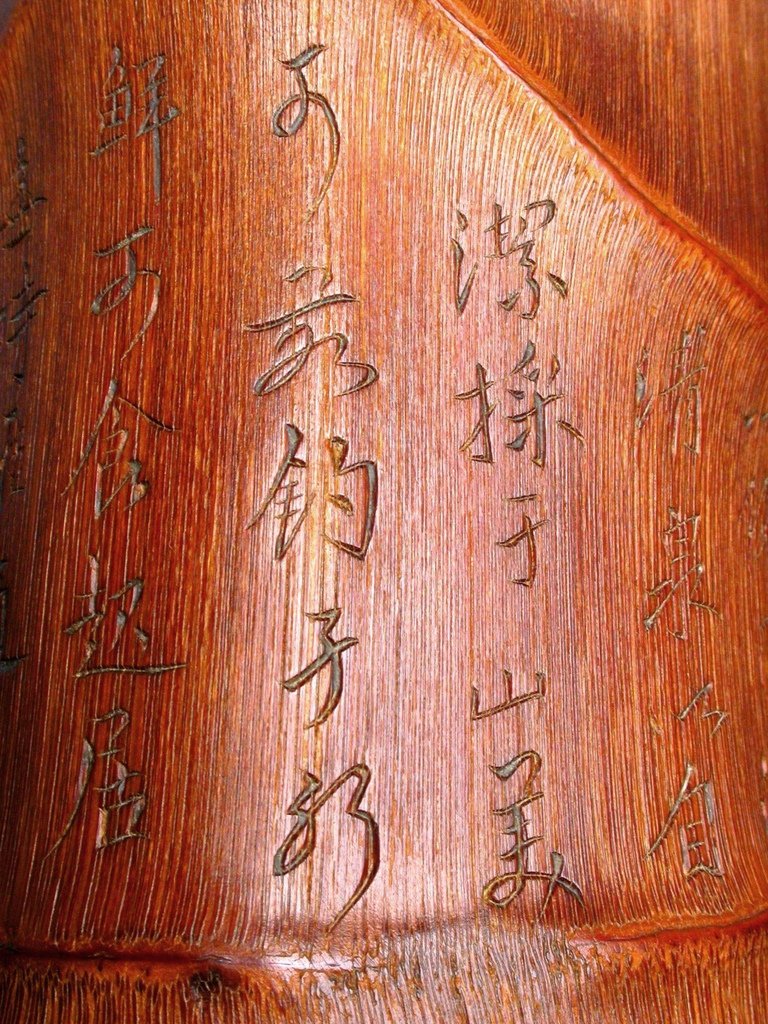 清泉以自
潔採于山美
可茹釣于水
鮮可食起居